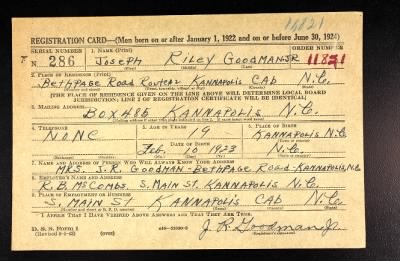 11821
REGISTRATION CARD—(Men born on or after January 1, 1922 and on or before June 30, 1924)
SERIAL NUMBER 1. NAME (Print) ORDER NUMBER
N 286 JOSEPH RILEY GOODMAN JR 11821
(First) (Middle) (Last)
2. PLACE OF RESIDENCE (Print)
BETHPAGE ROAD ROUTE 2 KANNAPOLIS CAB N.C.
[THE PLACE OF RESIDENCE GIVEN ON THE LINE ABOVE WILL DETERMINE LOCAL BOARD
JURISDICTION; LINE 2 OF REGISTRATION CERTIFICATE WILL BE IDENTICAL]
3. MAILING ADDRESS
BOX 485 KANNAPOLIS N.C.
4. TELEPHONE 5. AGE IN YEARS 6. PLACE OF BIRTH
NONE 19 KANNAPOLIS N.C.
DATE OF BIRTH
Feb. 10 1923 N.C.
7. NAME AND ADDRESS OF PERSON WHO WILL ALWAYS KNOW YOUR ADDRESS
MRS. J.R. GOODMAN-BETHPAGE ROAD-KANNAPOLIS, N.C.
8. EMPLOYER'S NAME AND ADDRESS
R.B. McCOMBS. S. MAIN ST. KANNAPOLIS N.C.
9. PLACE OF EMPLOYMENT OR BUSINESS
S. MAIN ST KANNAPOLIS CAB N.C.
I AFFIRM THAT I HAVE VERIFIED ABOVE ANSWERS AND THAT THEY ARE TRUE.
D. S. S. FORM 1
(over) J. R. Goodman Jr.
(Registrant's signature)